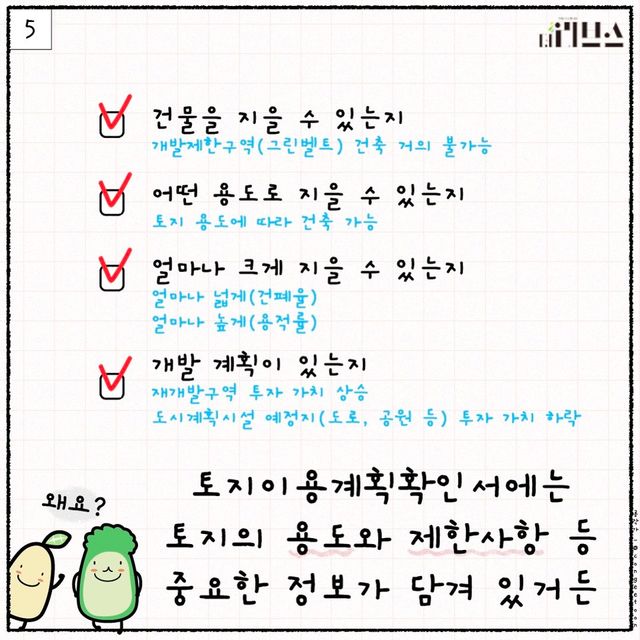 5
더캐브스
건물을 지을 수 있는지
개발제한구역(그린벨트) 건축 거의 불가능
어떤 용도로 지을 수 있는지
토지 용도에 따라 건축 가능
얼마나 크게 지을 수 있는지
얼마나 넓게(건폐율)
얼마나 높게(용적률)
개발 계획이 있는지
재개발구역 투자 가치 상승
도시계획시설 예정지(도로, 공원 등) 투자 가치 하락
왜요?
토지이용계획확인서에는
토지의 용도와 제한사항 등
중요한 정보가 담겨 있거든